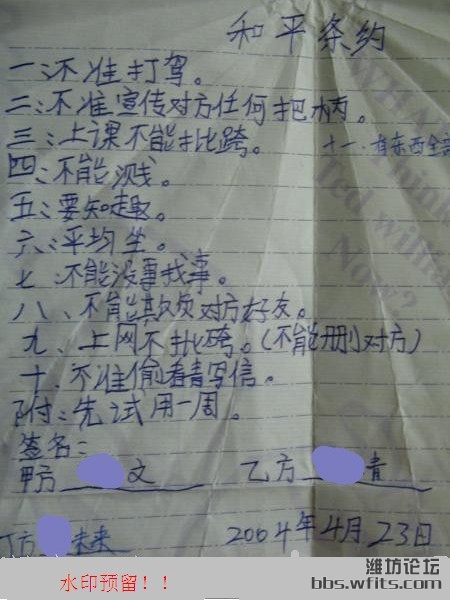 和平条约
一:不准打驾。
二:不准宣传对方任何把柄。
三:上课不能批跨。
十一、有东西全部
四:不能溅。
五:要知趣。
六:平均坐。
七 不能没事找事。
八、不能欺负对方好友。
九、上网不批跨。(不能删对方)
十、不准偷看青写信。
附:先试用一周。
签名:
甲方 文 乙方 青
丁方 未来
2004年4月23日
水印预留!!
潍坊论坛
bbs.wfits.com